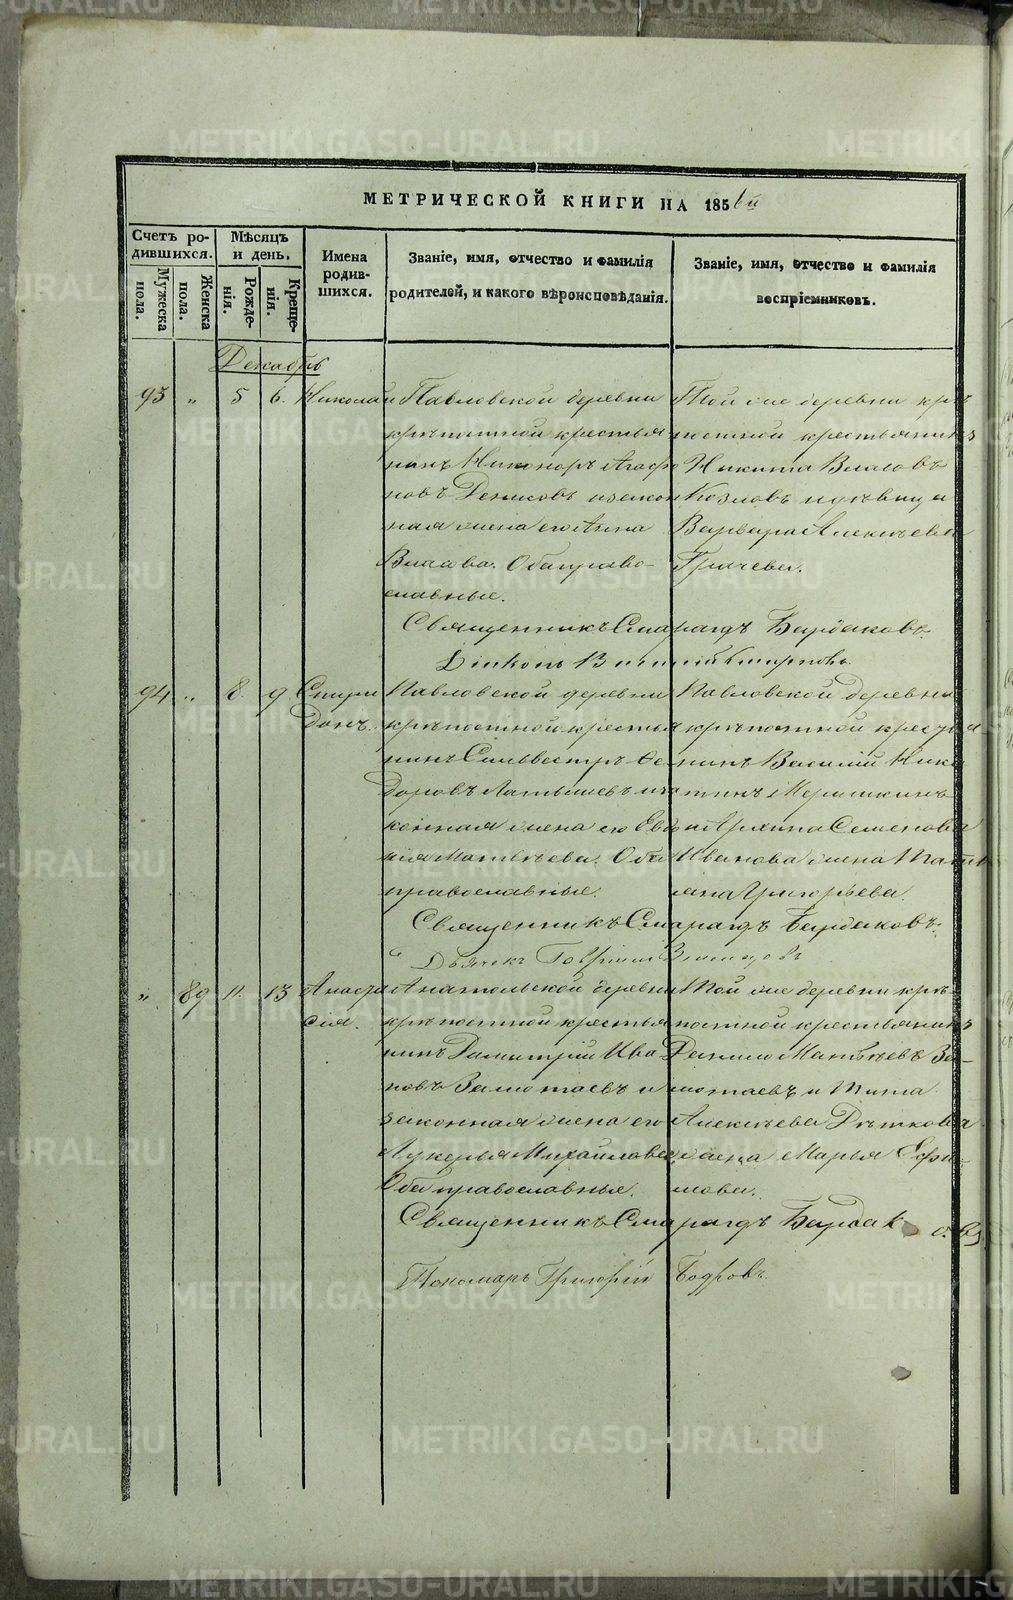 МЕТРИЧЕСКОЙ КНИГИ НА 1856й
Счетъ ро-
дившихся.
Мужеска
пола.
Женска
пола.
Мѣсяцъ
и день.
Рожде-
нія.
Креще-
нія.
Имена
родив-
шихся.
Званіе, имя, отчество и фамилія
родителей, и какого вѣроисповѣданія.
Званіе, имя, отчество и фамилія
воспріемниковъ.
Декабрь
93 „ 5 6. Николай
Павловской деревни
крѣпостной крестья
нинъ Никоноръ Агафо
новъ Денисовъ и закон
ная жена его Анна
Власова. Оба право-
славные.
Той же деревни крѣ
постной крестьянинъ
Никита Власовъ
Козловъ и дѣвица
Варвара Алексѣева
Грачева.
Священникъ Смарагдъ Бардаковъ
Діаконъ
94 „ 8 9 Спири
донъ.
Павловской деревни
крѣпостной крестья
нинъ Сильвестръ Ѳе
доровъ Латышевъ и за
конная жена его Евдо
кія Матвѣева. Оба
православные.
Павловской деревни
крѣпостной крестья
нинъ Василій Ники
тинъ
и Ирина Семенова
Иванова жена Тать
яна Григорьева.
Священникъ Смарагдъ Бардаковъ.
Дьячекъ Гавріилъ
„ 89 11. 13 Анаста
сія.
Анатольской деревни
крѣпостной крестья
нинъ Димитрій Ива
новъ Замотаевъ и
законная жена его
Лукерья Михайлова
Оба православные.
Той же деревни крѣ
постной крестьянинъ
Данило Матвѣевъ За-
мотаевъ и Тита
Алексѣева Дѣткова
жена Марья Ефи
мова.
Священникъ Смарагдъ Бардаковъ
Пономарь Григорій Бодровъ
METRIKI.GASO-URAL.RU